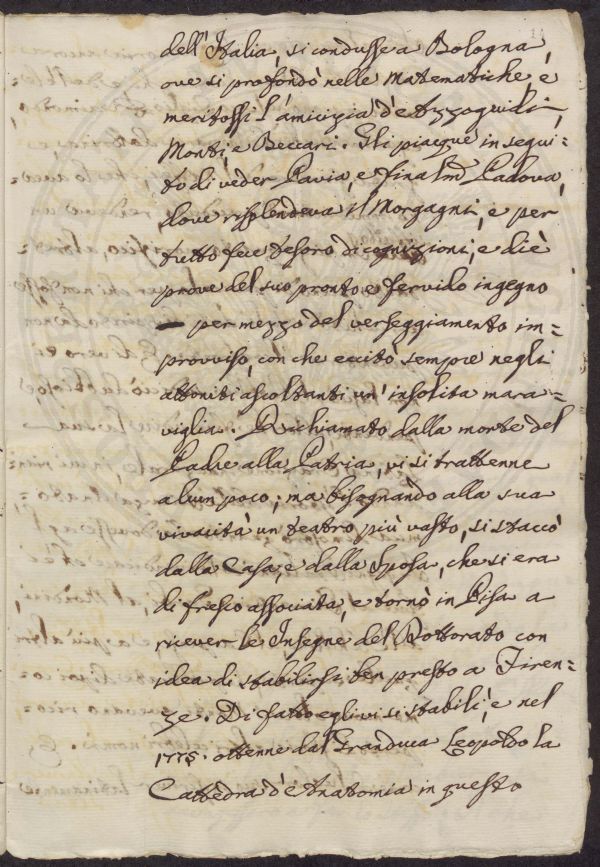 dell'Italia, si condusse a Bologna,
ove si profondò nelle Matematiche, e
meritossi l'amicizia d'Azzoguidi,
Monti, e Beccari. Gli piacque in segui=
to di veder Pavia, e finalm Padova,
dove risplendeva il Morgagni, e per
tutto fece tesoro di cognizioni, e diè
prove del suo pronto e fervido ingegno
— per mezzo del verseggiamento im=
provviso, con che eccitò sempre negli
attoniti ascoltanti un' insolita mara=
viglia. Richiamato dalla morte del
Padre alla Patria, vi si trattenne
alcun poco; ma bisognando alla sua
vivacità un teatro più vasto, si staccò
dalla Casa, e dalla Sposa, che si era
di fresco associata, e tornò in Pisa a
ricever le Insegne del Dottorato con
idea di stabilirsi ben presto a Firen=
ze. Di fatto egli vi si stabilì, e nel
1775. ottenne dal Granduca Leopoldo la
Cattedra d'Anatomia in questo